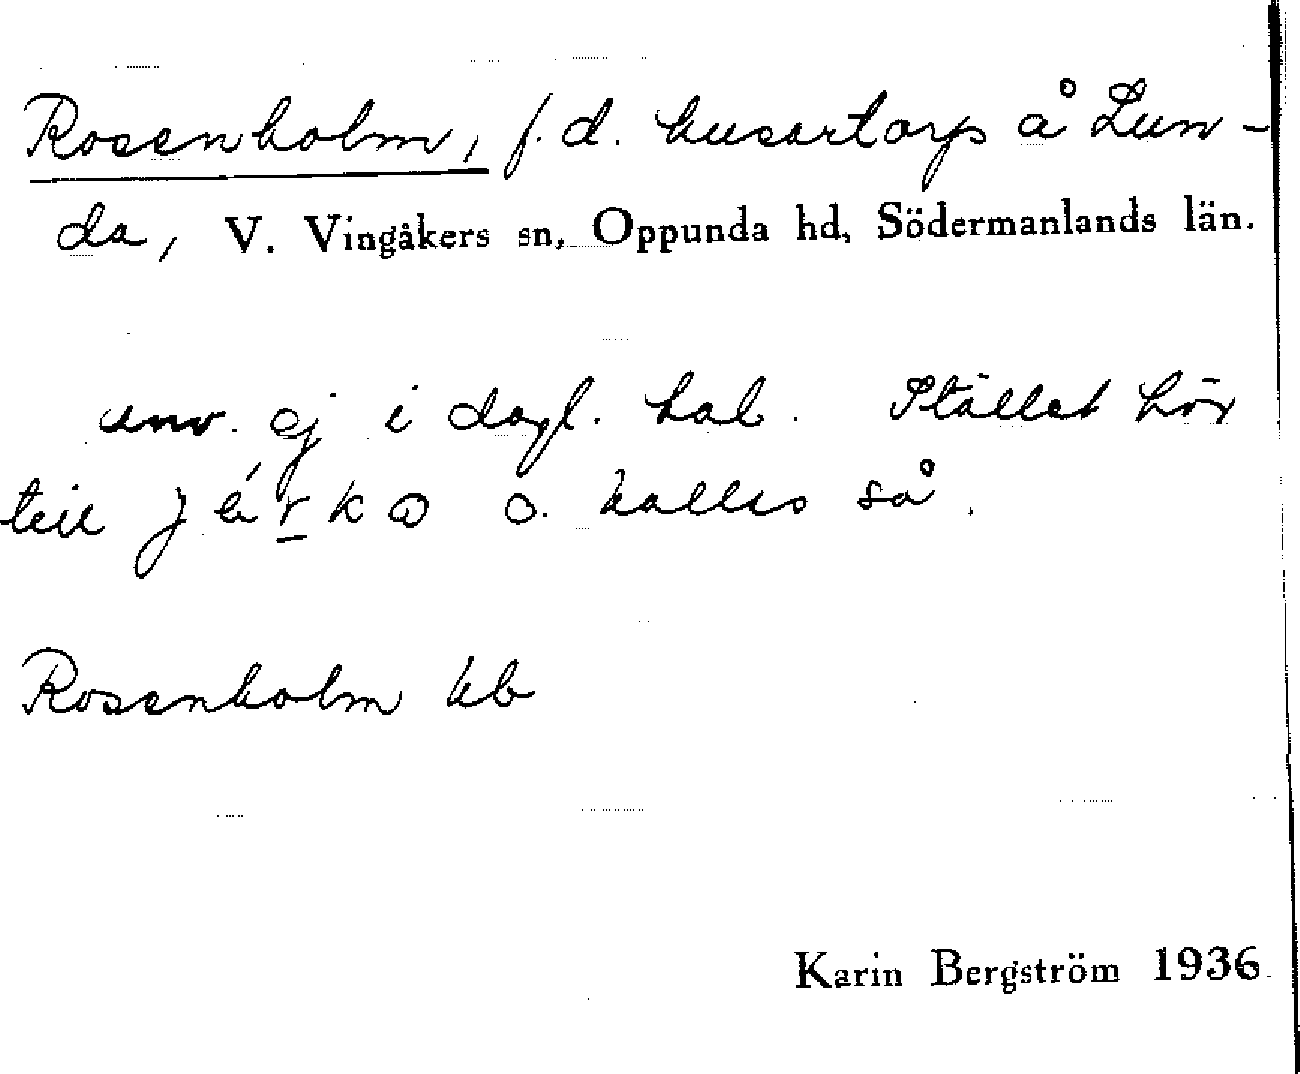 Rosenholm, f.d. husartorp å Lun-
da, V. Vingåkers sn, Oppunda hd, Södermanlands län.
anv. ej i dagl. tal. Stället hör
till o. kallas så.
Rosenholm kb
Karin Bergström 1936